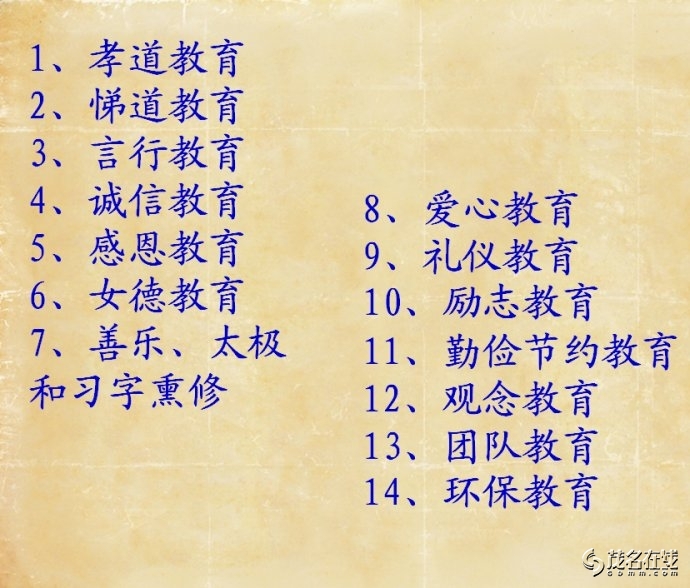 1、孝道教育
2、悌道教育
3、言行教育
4、诚信教育
5、感恩教育
6、女德教育
7、善乐、太极
和习字熏修
8、爱心教育
9、礼仪教育
10、励志教育
11、勤俭节约教育
12、观念教育
13、团队教育
14、环保教育
茂名在线
comm.com